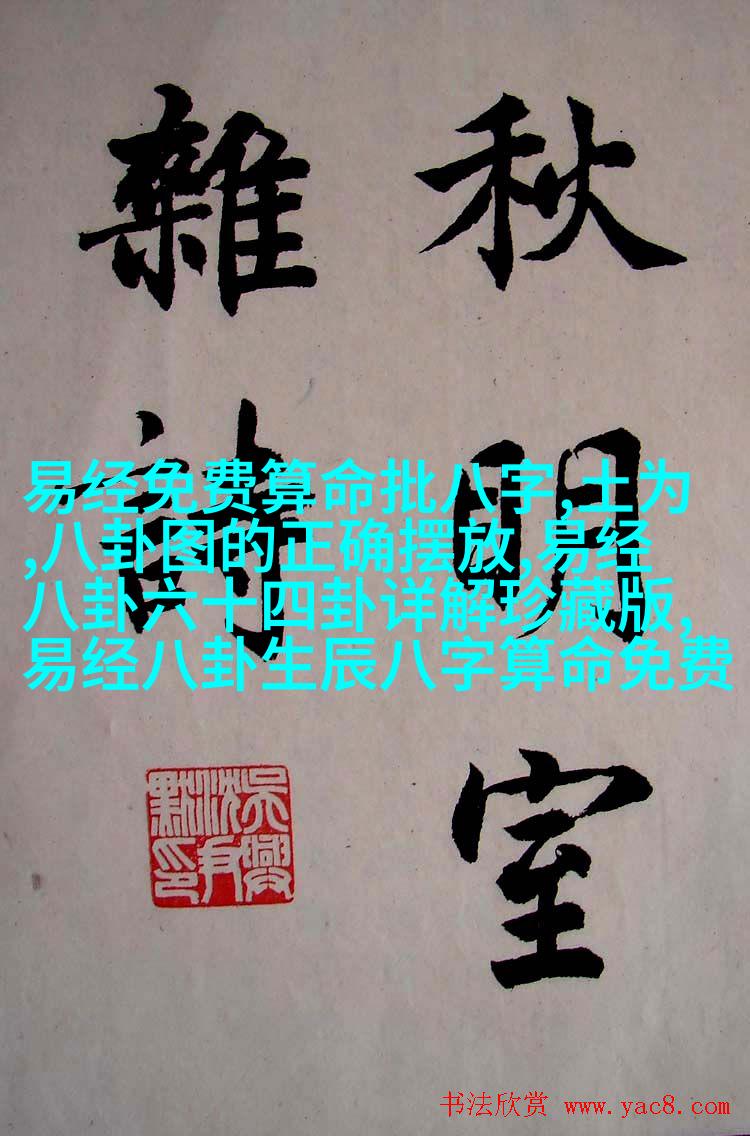 秋明室
雜詩
易经免费算命批八字,土为
,八卦图的正确摆放,易经
八卦六十四卦详解珍藏版,
易经八卦生辰八字算命免费
吳興
沈尹
默印
书法欣赏 www.yac8.com